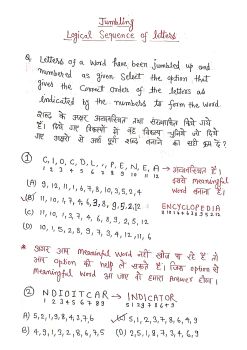 Jumbling
Logical Sequence of letters
Q Letters of a Word have been jumbled up and
numbered as given Select the option that
gives the Correct order of the letters as
indicated by the numbers to form the word.
शब्द के अक्षर अव्यवस्थित तथा संख्यांकित किये गये
हैं। दिये गए विकल्पों में वह विकल्प चुनिये जो दिये
गए अक्षरों से अर्थ पूर्ण शब्द बनाने का सही क्रम दे?
① C, I, O, C, D, L, Y, P, E, N, E, A → अव्यवस्थित है।
1 2 3 4 5 6 7 8 9 10 11 12
इससे meaningful word
बनाना है।
(A) 9, 12, 11, 1, 6, 7, 8, 10, 3, 5, 2, 4
(B) 11, 10, 1, 7, 4, 6, 3, 8, 9, 5, 2, 12
ENCYCLOPEDIA
(C) 11, 10, 1, 3, 7, 4, 6, 8, 9, 2, 5, 12
(D) 10, 1, 5, 2, 8, 9, 7, 3, 4, 12, 11, 6
* अगर आप Meaningful word नहीं खोज पा रहे हैं तो
आप option की help ले सकते हैं। जिस option से
Meaningful word आ जाए वो हमारा answer होगा।
② NDIOITCAR → INDICATOR
1 2 3 4 5 6 7 8 9
(A) 5, 2, 1, 9, 8, 4, 3, 7, 6
5, 1, 2, 3, 7, 8, 6, 4, 9
(B) 4, 9, 1, 3, 2, 8, 6, 7, 5
(D) 2, 5, 1, 8, 7, 3, 4, 6, 9